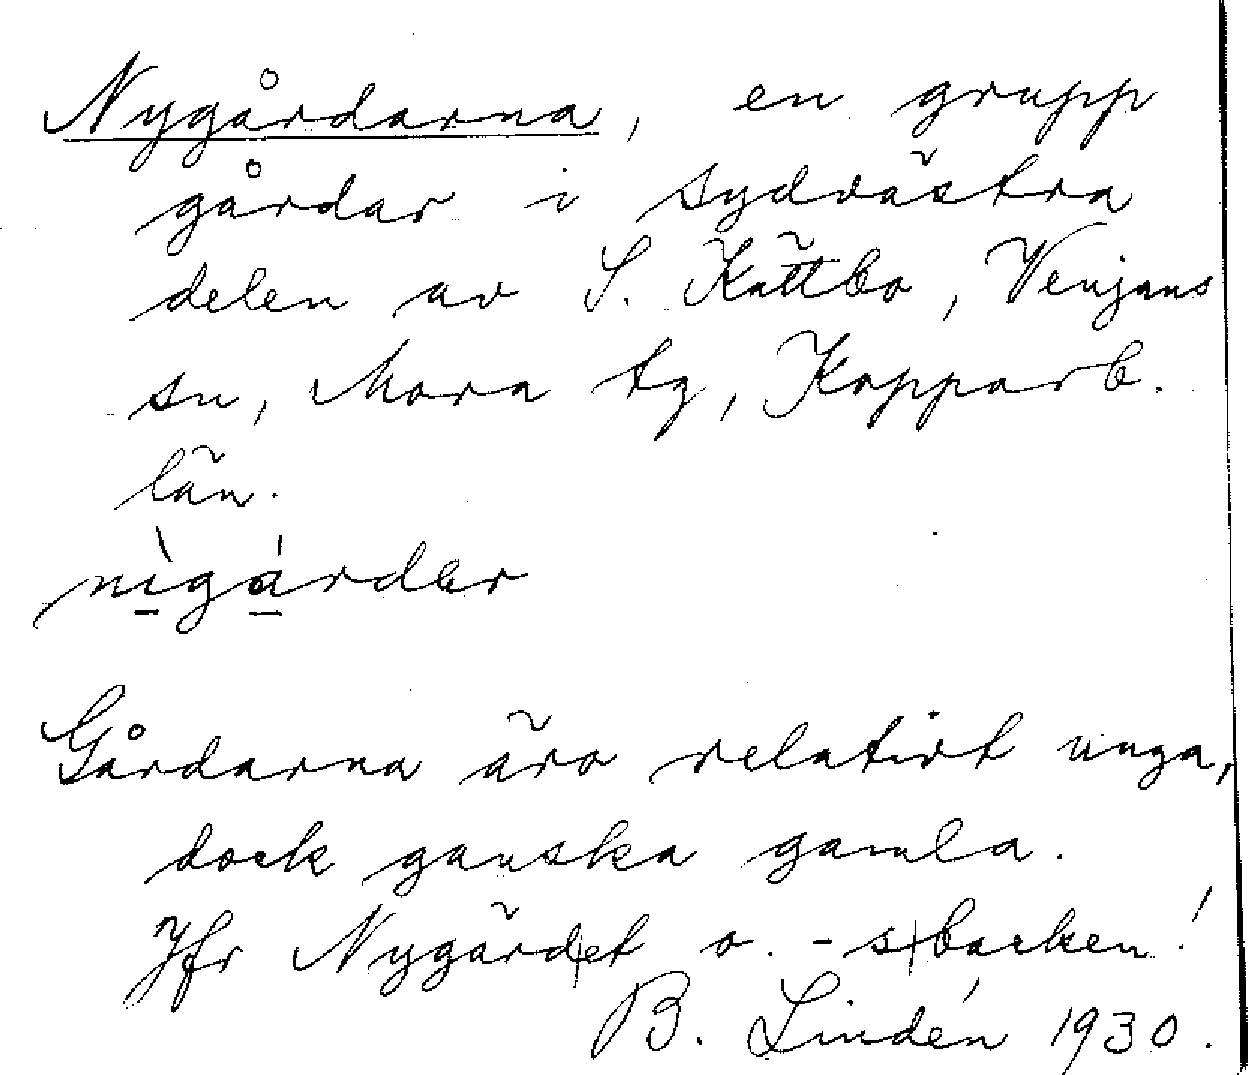 Nygårdarna, en grupp
gårdar i sydvästra
delen av S. Kättbo, Venjans
sn, Mora tg, Kopparb.
län.
nìgárdər
Gårdarna äro relativt unga,
dock ganska gamla.
Jfr Nygärdet o. -sbacken!
B. Lindén 1930.